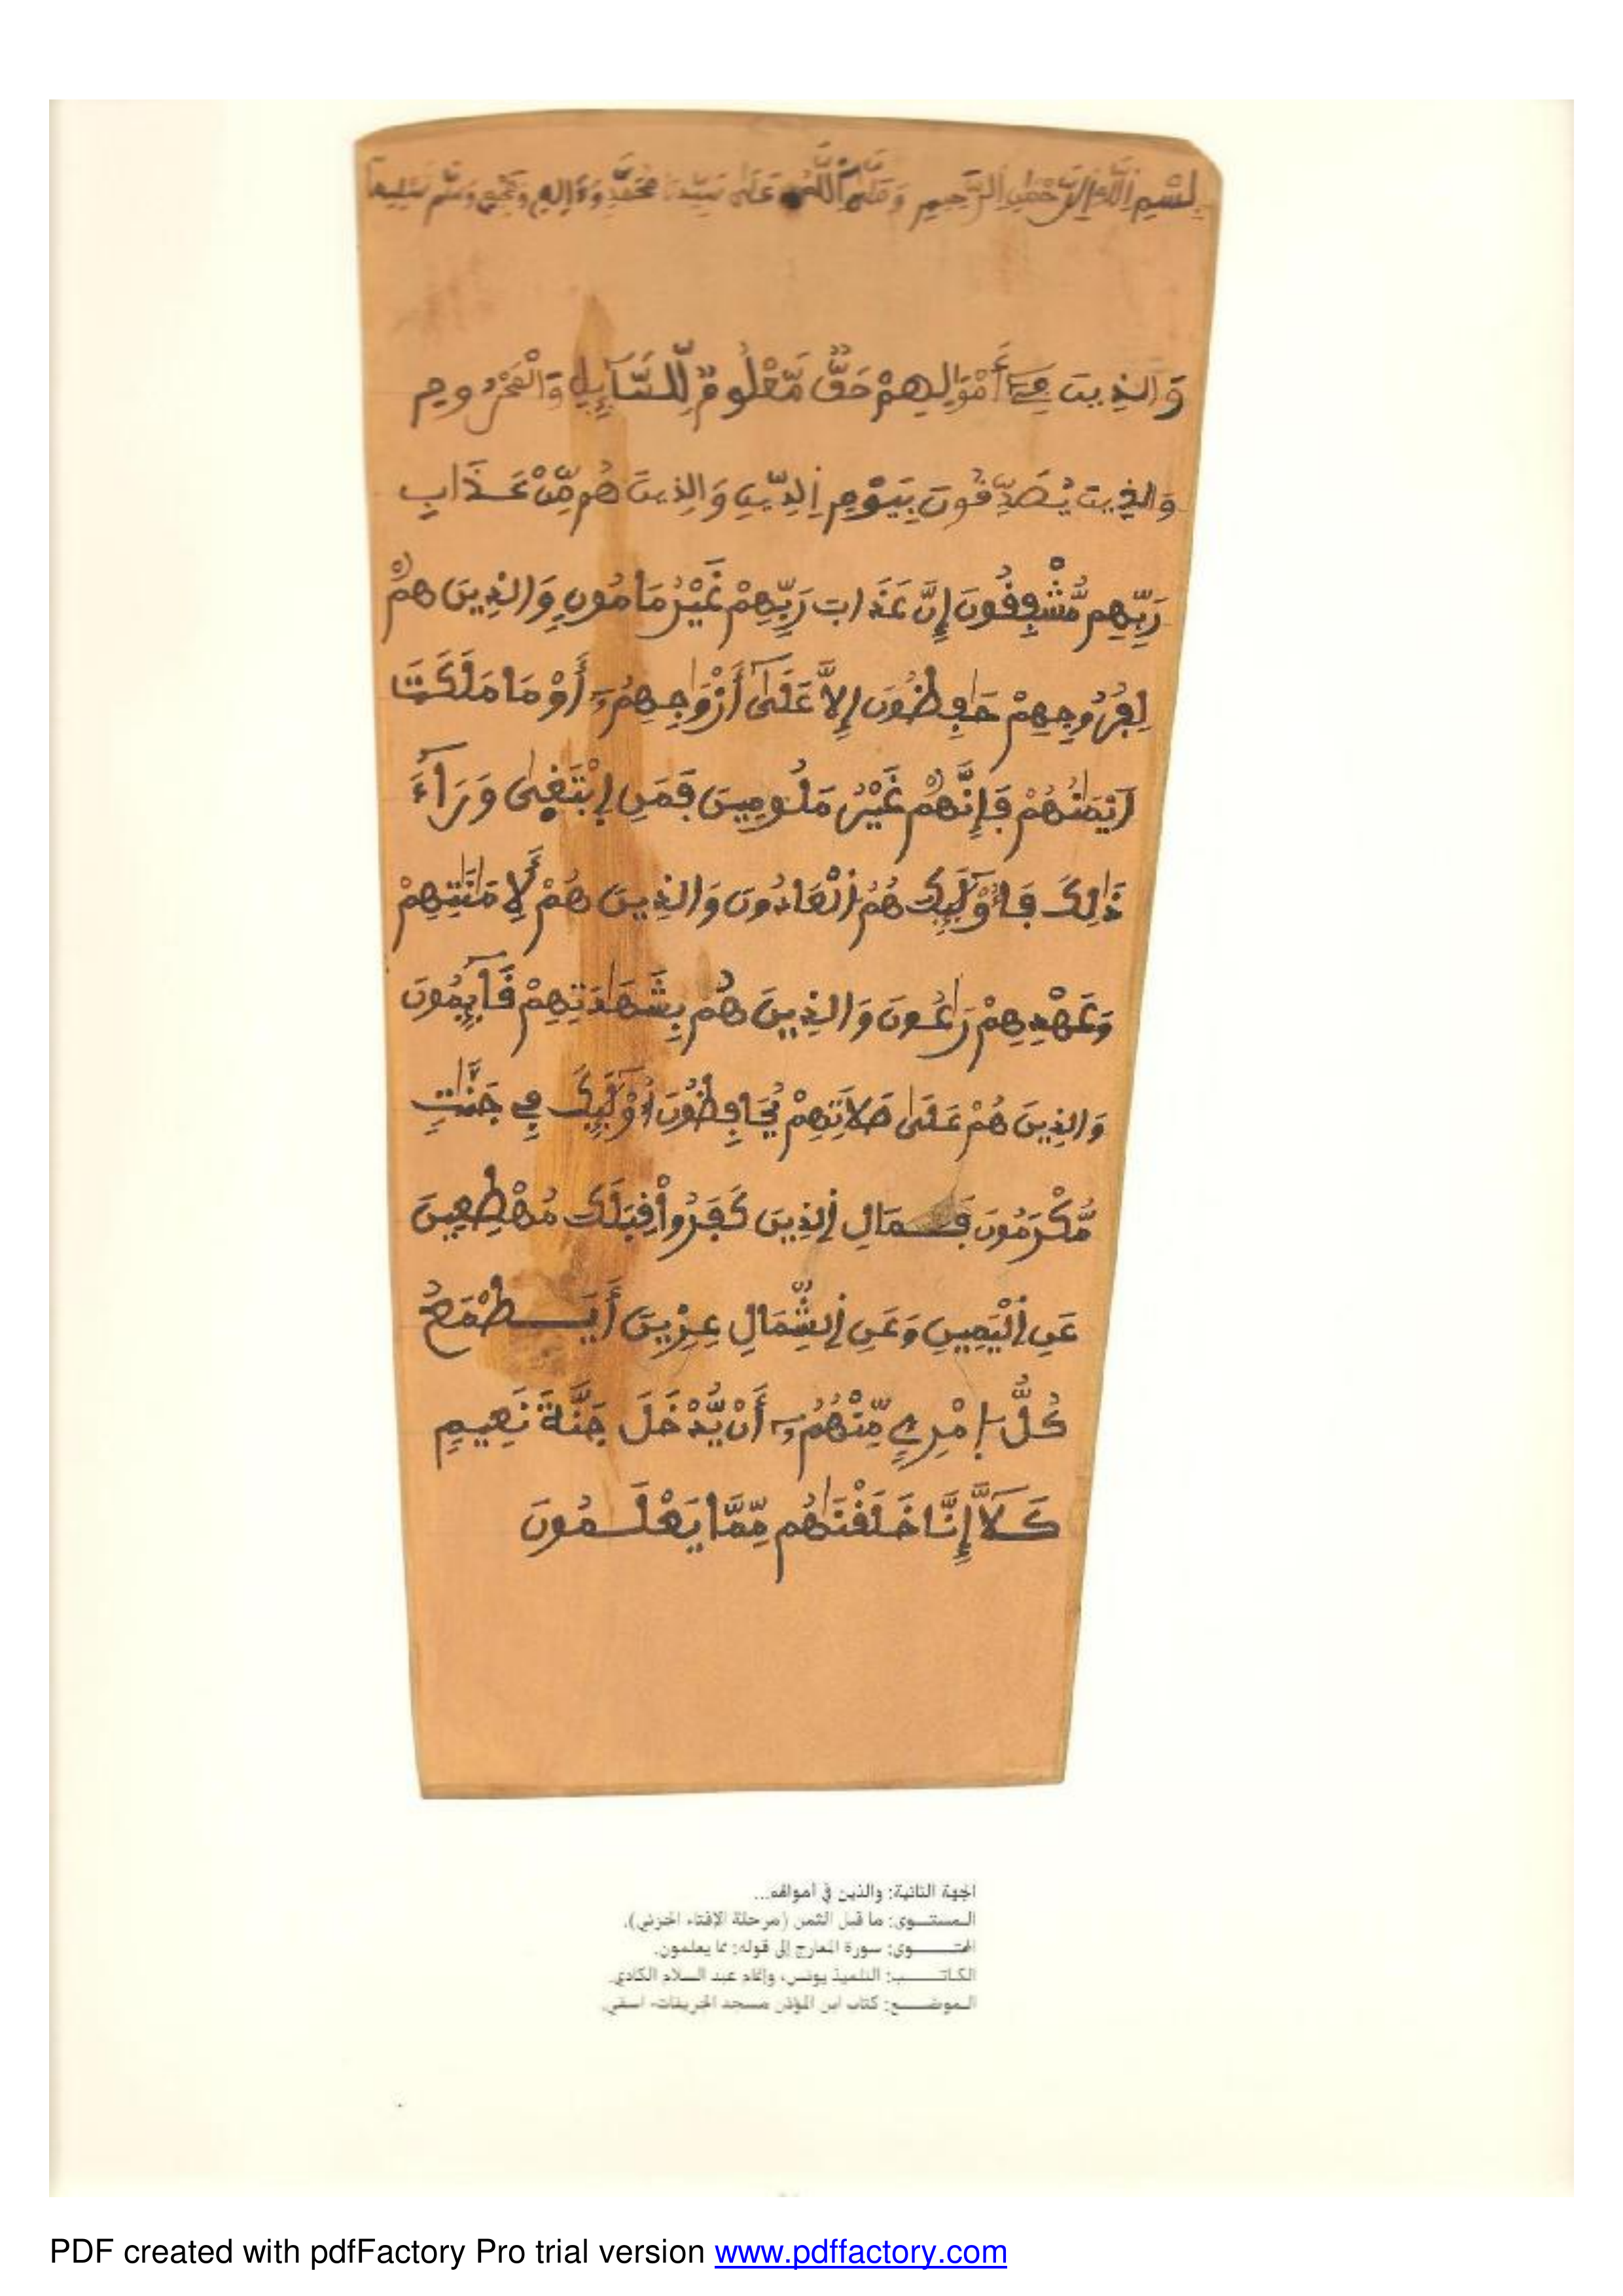 بِسْمِ اِللَّهِ اِلرَّحْمٰنِ اِلرَّحِيمِ وَصَلَّى اَللَّهُ عَلَى سَيِّدِنَا مُحَمَّدٍ وَءَالِهِ وَصَحْبِهِ وَسَلَّمَ تَسْلِيماً
وَالذِينَ فِےٓ أَمْوَٰلِهِمْ حَقٌّ مَّعْلُومٌ لِّلسَّآئِلِ وَالْمَحْرُومِ
وَالذِينَ يُصَدِّقُونَ بِيَوْمِ اِلدِّينِ وَالذِينَ هُم مِّنْ عَذَابِ
رَبِّهِم مُّشْفِقُونَ إِنَّ عَذَابَ رَبِّهِمْ غَيْرُ مَامُونٍ وَالذِينَ هُمْ
لِفُرُوجِهِمْ حَٰفِظُونَ إِلاَّ عَلَىٰٓ أَزْوَٰجِهِمُۥٓ أَوْ مَا مَلَكَتَ
اَيْمَٰنُهُمْ فَإِنَّهُمْ غَيْرُ مَلُومِينَ فَمَنِ اِبْتَغىٰ وَرَآءَ
ذَٰلِكَ فَأُوْلَٰٓئِكَ هُمُ اُلْعَادُونَ وَالذِينَ هُمْ لَأِمَٰنَٰتِهِمْ
وَعَهْدِهِمْ رَٰعُونَ وَالذِينَ هُم بِشَهَٰدَتِهِمْ قَآئِمُونَ
وَالذِينَ هُمْ عَلَىٰ صَلاَتِهِمْ يُحَافِظُونَ أُوْلَٰٓئِكَ فِے جَنَّٰتٍ
مُّكْرَمُونَ فَمَالِ اِلذِينَ كَفَرُواْ قِبَلَكَ مُهْطِعِينَ
عَنِ اِلْيَمِينِ وَعَنِ اِلشِّمَالِ عِزِينَ أَيَطْمَعُ
كُلُّ اُ۪مْرِےٕ مِّنْهُمُۥٓ أَنْ يُّدْخَلَ جَنَّةَ نَعِيمٍ
كَلآَّ إِنَّا خَلَقْنَٰهُم مِّمَّا يَعْلَمُونَ
الجهة الثانية: والذين في أموالهم...
المستــوى: ما قبل الثمن (مرحلة الإفتاء الجزئي).
المحتـــوى: سورة المعارج إلى قوله: مما يعلمون.
الكاتـــب: التلميذ يونس، وإتمام عبد السلام الكادي.
الموضــع: كتاب ابن المؤذن مسجد الخريفات- اسفي.
PDF created with pdfFactory Pro trial version www.pdffactory.com